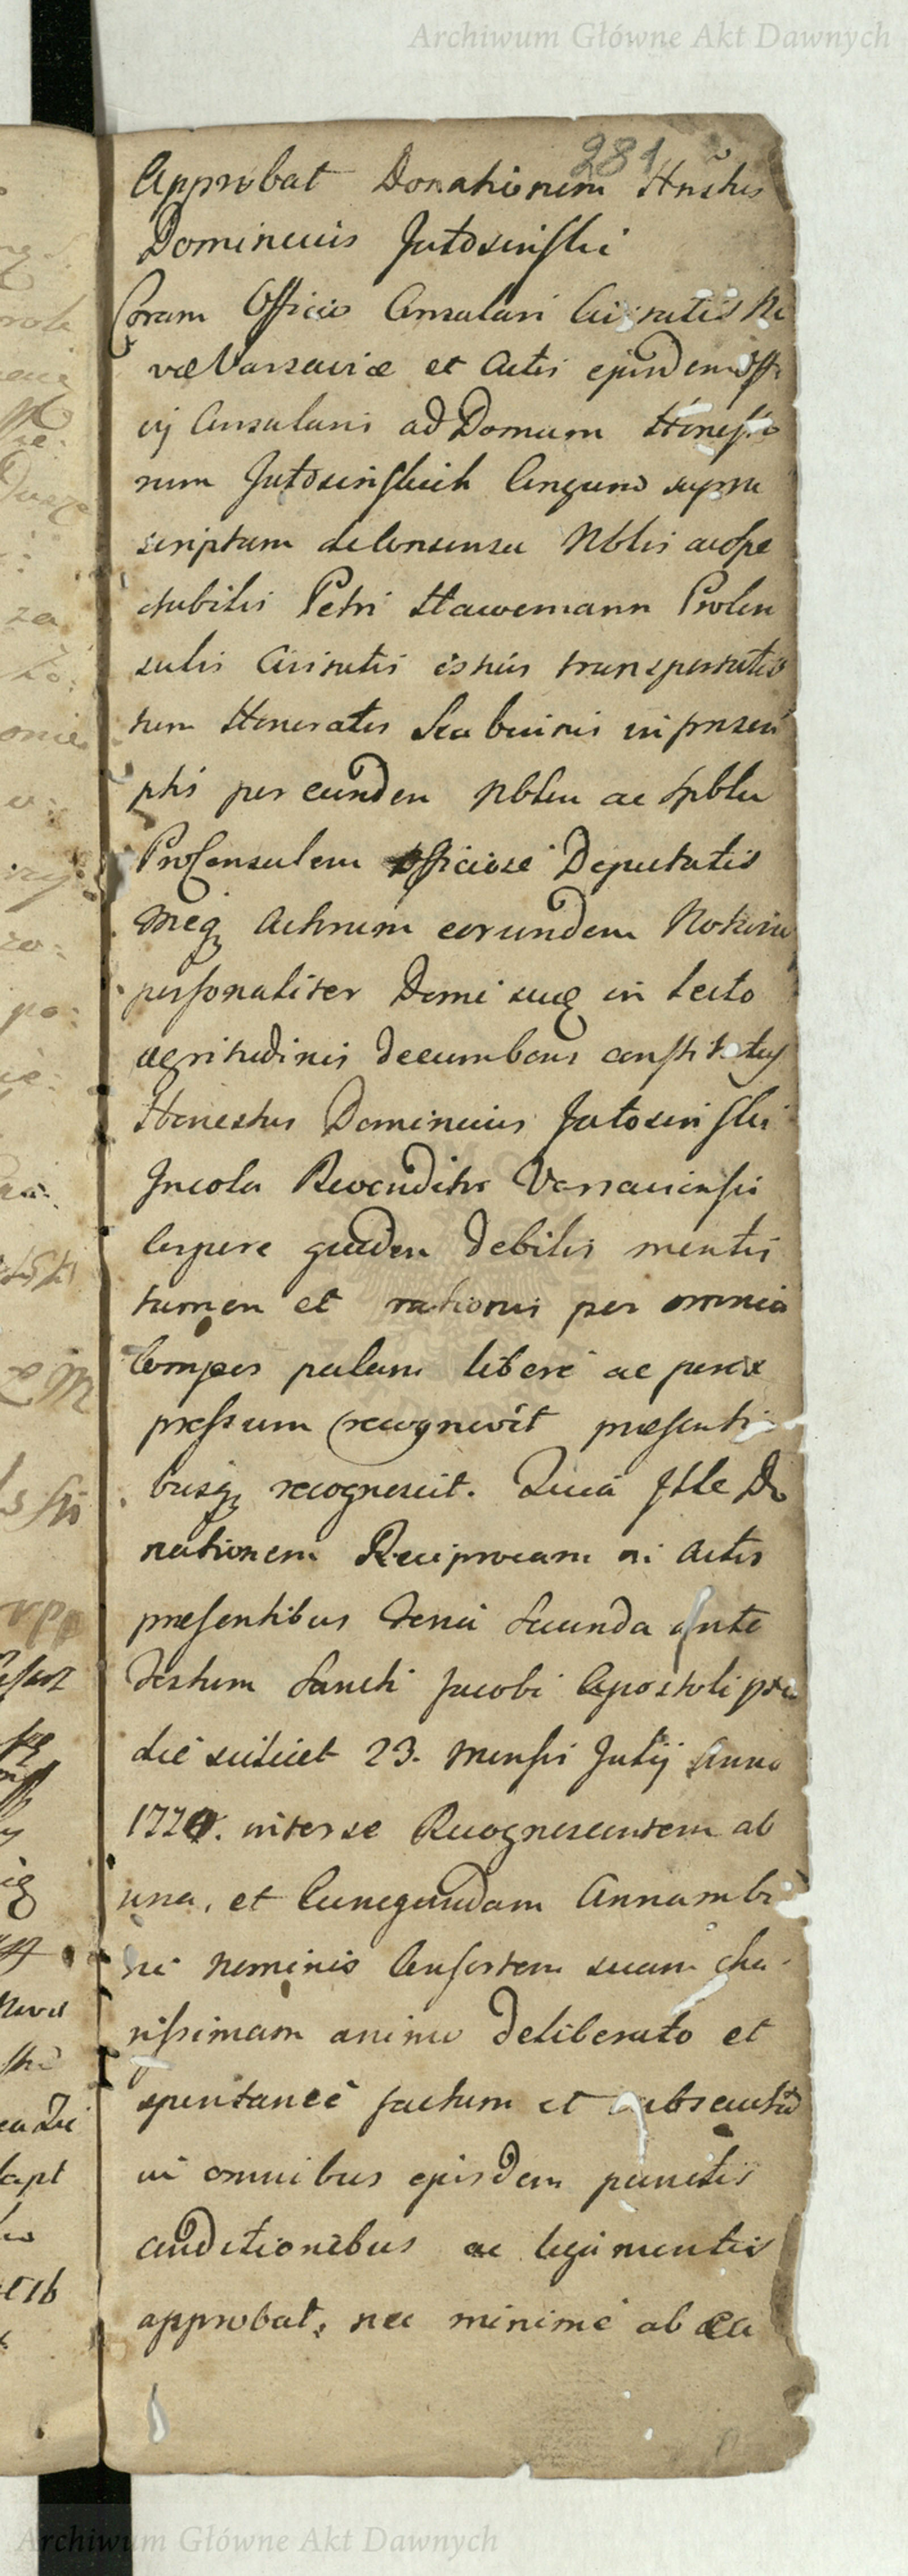 Archiwum Główne Akt Dawnych
281
Approbat Donationem Hnstus
Dominicus Jutosinski
Coram Officio Consulari Civitatis No
væ Varsaviæ et Actis ejusdem Offi
cij Consularis ad Domum Honesto
rum Jutosinskich Congruo supra
scriptum de Consensu Nblis ac Spe
ctabilis Petri Hawemann Procon
sulis Civitatis istius transportatis
tum Honoratis Scabinis in praesen
ptis per eunden Nblen ac Spblen
ProConsulem officiose Deputatis
Meq Actorum eorundem Notario
personaliter Domi suæ in Lecto
ægritudinis decumbens constitutus
Honestus Dominicus Jutosinski
Incola Revenditor Varsaviensis
Corpore quiden debilis mentis
tamen et rationis per omnia
Compos palam libere ac per ex
pressum recognovit præsenti
busq recognoscit. Quia Ille Do
nationem Reciprocam in Actis
præsentibus Feria Secunda Ante
Festum Sancti Jacobi Apostoli pri
die scilicet 23. Mensis Julij Anno
inter se Recognoscentem ab
una, et Cunegundam Annam bi
ni nominis Consortem suam cha
rissimam animo deliberato et
spontanee factam et subsecutā
in omnibus ejusdem punctis
conditionibus ac ligamentis
approbat, nec minime ab ea
Archiwum Główne Akt Dawnych